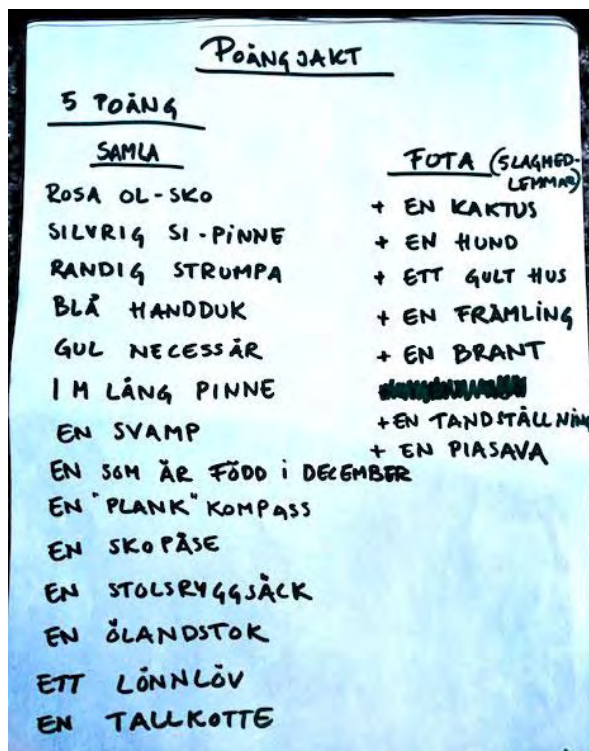 POÄNGJAKT
5 POÄNG
SAMLA
ROSA OL-SKO
SILVRIG SI-PINNE
RANDIG STRUMPA
BLÅ HANDDUK
GUL NECESSÄR
1 M LÅNG PINNE
EN SVAMP
EN SOM ÄR FÖDD I DECEMBER
EN "PLANK" KOMPASS
EN SKOPÅSE
EN STOLSRYGGSÄCK
EN ÖLANDSTOK
ETT LÖNNLÖV
EN TALLKOTTE
FOTA (SLAGHED-
LEMMAR)
+ EN KAKTUS
+ EN HUND
+ ETT GULT HUS
+ EN FRÄMLING
+ EN BRANT
+ EN TANDSTÄLLNING
+ EN PIASAVA